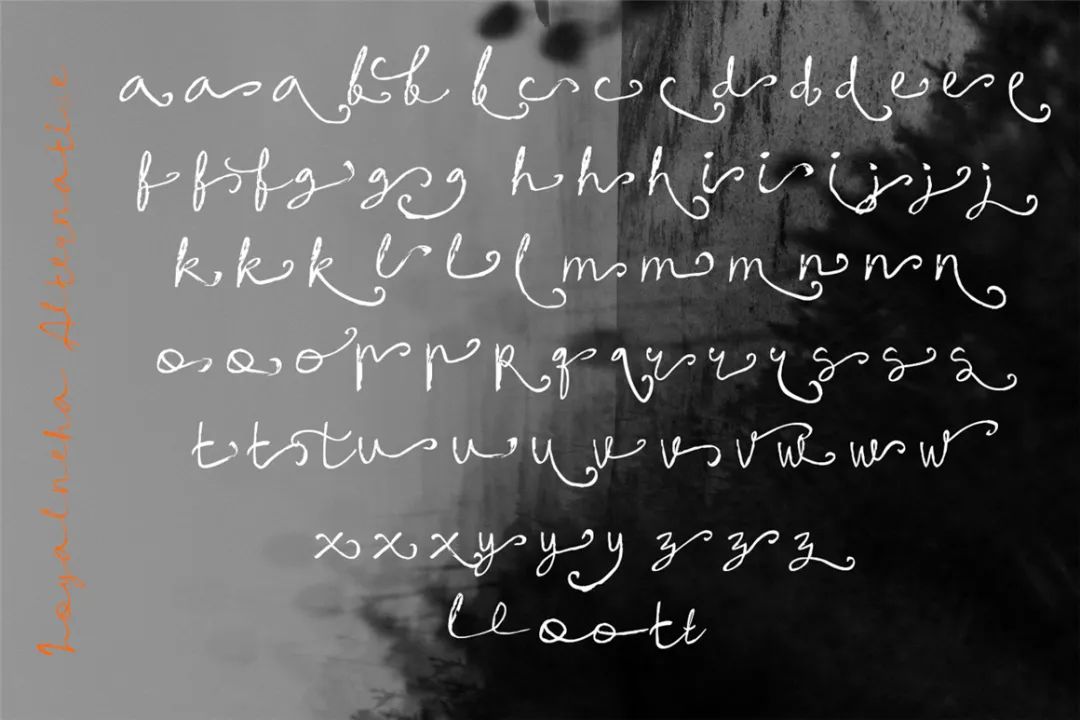 Loyal neha Alternative
a a a b b b c c c d d d e e e
f f f g g g h h h i i i j j j
k k k l l l m m m n n n
o o o p p p q q r r r s s s
t t t u u u v v v w w w
x x x y y y z z z
ll oo tt